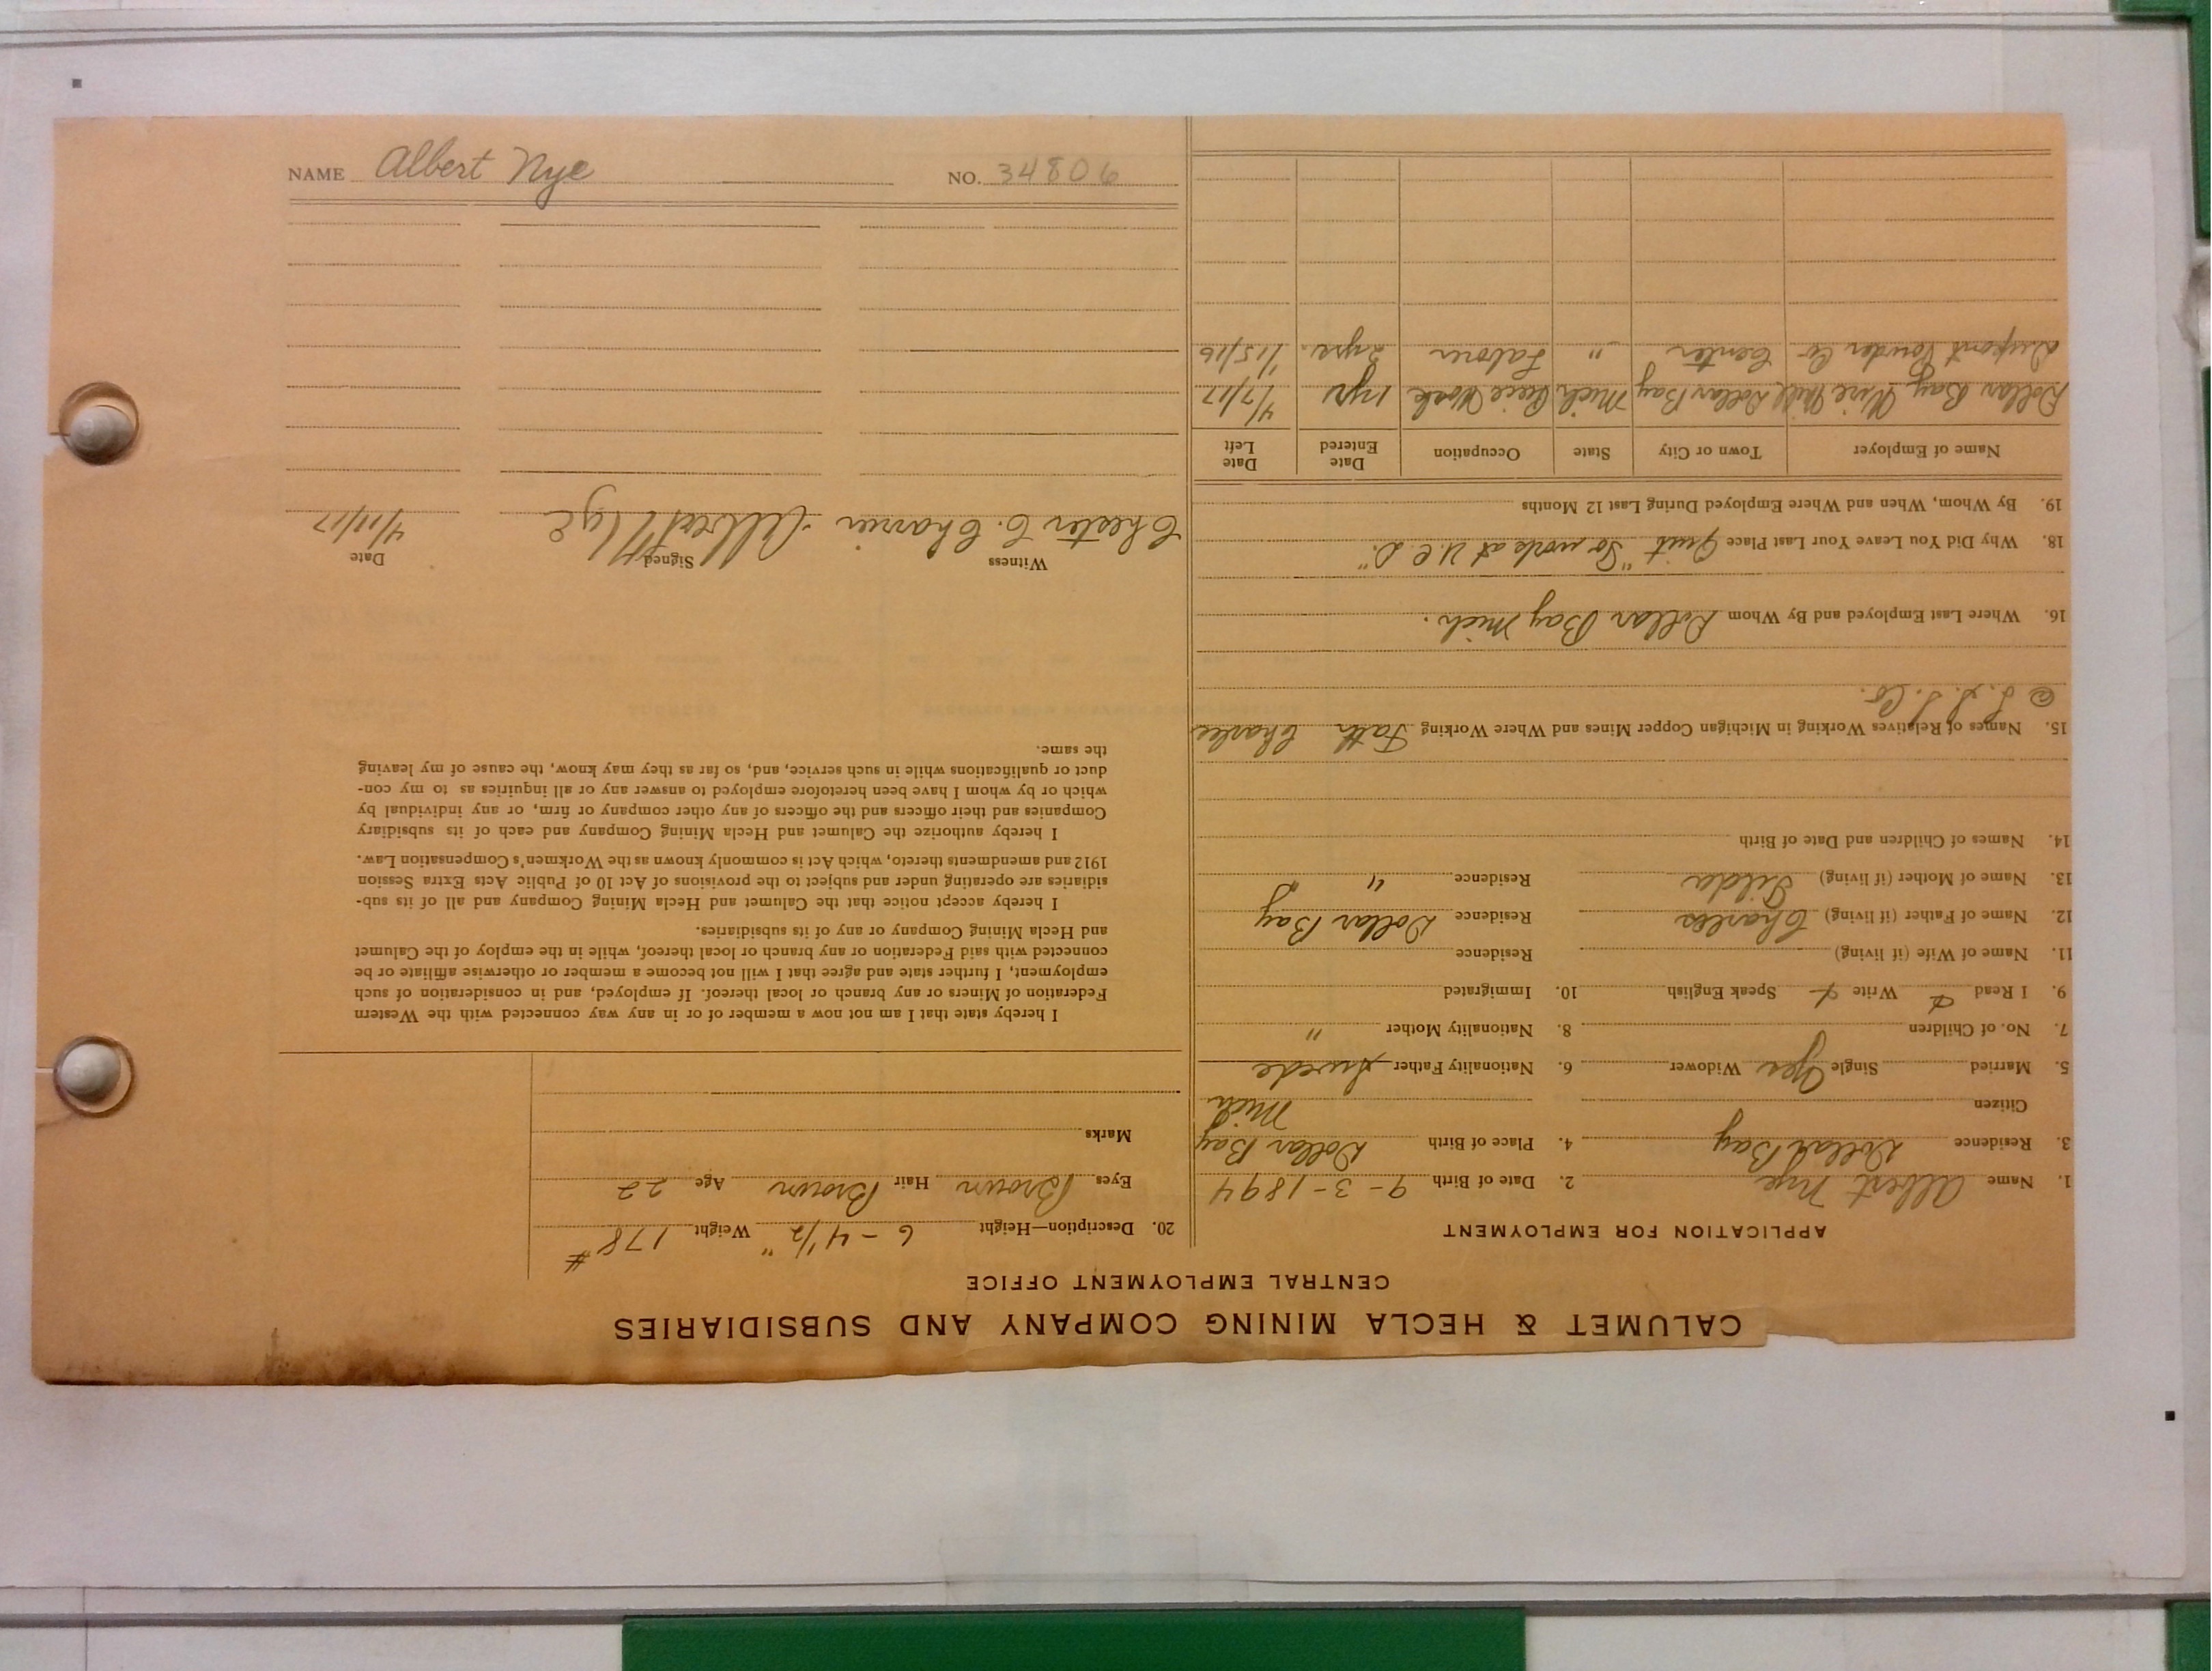 NAME Albert Nye NO. 34806
CALUMET & HECLA MINING COMPANY AND SUBSIDIARIES
CENTRAL EMPLOYMENT OFFICE
APPLICATION FOR EMPLOYMENT
1. Name Albert Nye 2. Date of Birth 9-3-1894
3. Residence Dollar Bay 4. Place of Birth Dollar Bay
Mich
Citizen
5. Married Single Yes Widower 6. Nationality Father Swede
7. No. of Children 8. Nationality Mother "
9. I Read Write Speak English 10. Immigrated
11. Name of Wife (if living) Residence
12. Name of Father (if living) Charles Residence Dollar Bay
13. Name of Mother (if living) Gilda Residence "
14. Names of Children and Date of Birth
15. Names of Relatives Working in Michigan Copper Mines and Where Working Fath Charles
16. Where Last Employed and By Whom Dollar Bay Mich.
18. Why Did You Leave Your Last Place Quit "To work at
19. By Whom, When and Where Employed During Last 12 Months
Name of Employer Town or City State Occupation Date Entered Date Left
Dollar Bay Wire Mill Dollar Bay Mich. Piece Work 1 yr 4/7/17
Dupont Powder Co Senter " Laborer 2 yrs. 1/15/16
20. Description—Height 6-4½" Weight 178#
Eyes Brown Hair Brown Age 22
Marks
I hereby state that I am not now a member of or in any way connected with the Western
Federation of Miners or any branch or local thereof. If employed, and in consideration of such
employment, I further state and agree that I will not become a member or otherwise affiliate or be
connected with said Federation or any branch or local thereof, while in the employ of the Calumet
and Hecla Mining Company or any of its subsidiaries.
I hereby accept notice that the Calumet and Hecla Mining Company and all of its sub-
sidiaries are operating under and subject to the provisions of Act 10 of Public Acts Extra Session
1912 and amendments thereto, which Act is commonly known as the Workmen's Compensation Law.
I hereby authorize the Calumet and Hecla Mining Company and each of its subsidiary
Companies and their officers and the officers of any other company or firm, or any individual by
which or by whom I have been heretofore employed to answer any or all inquiries as to my con-
duct or qualifications while in such service, and, so far as they may know, the cause of my leaving
the same.
Witness Signed Date
Chester C. Charrier Albert Nye 4/11/17